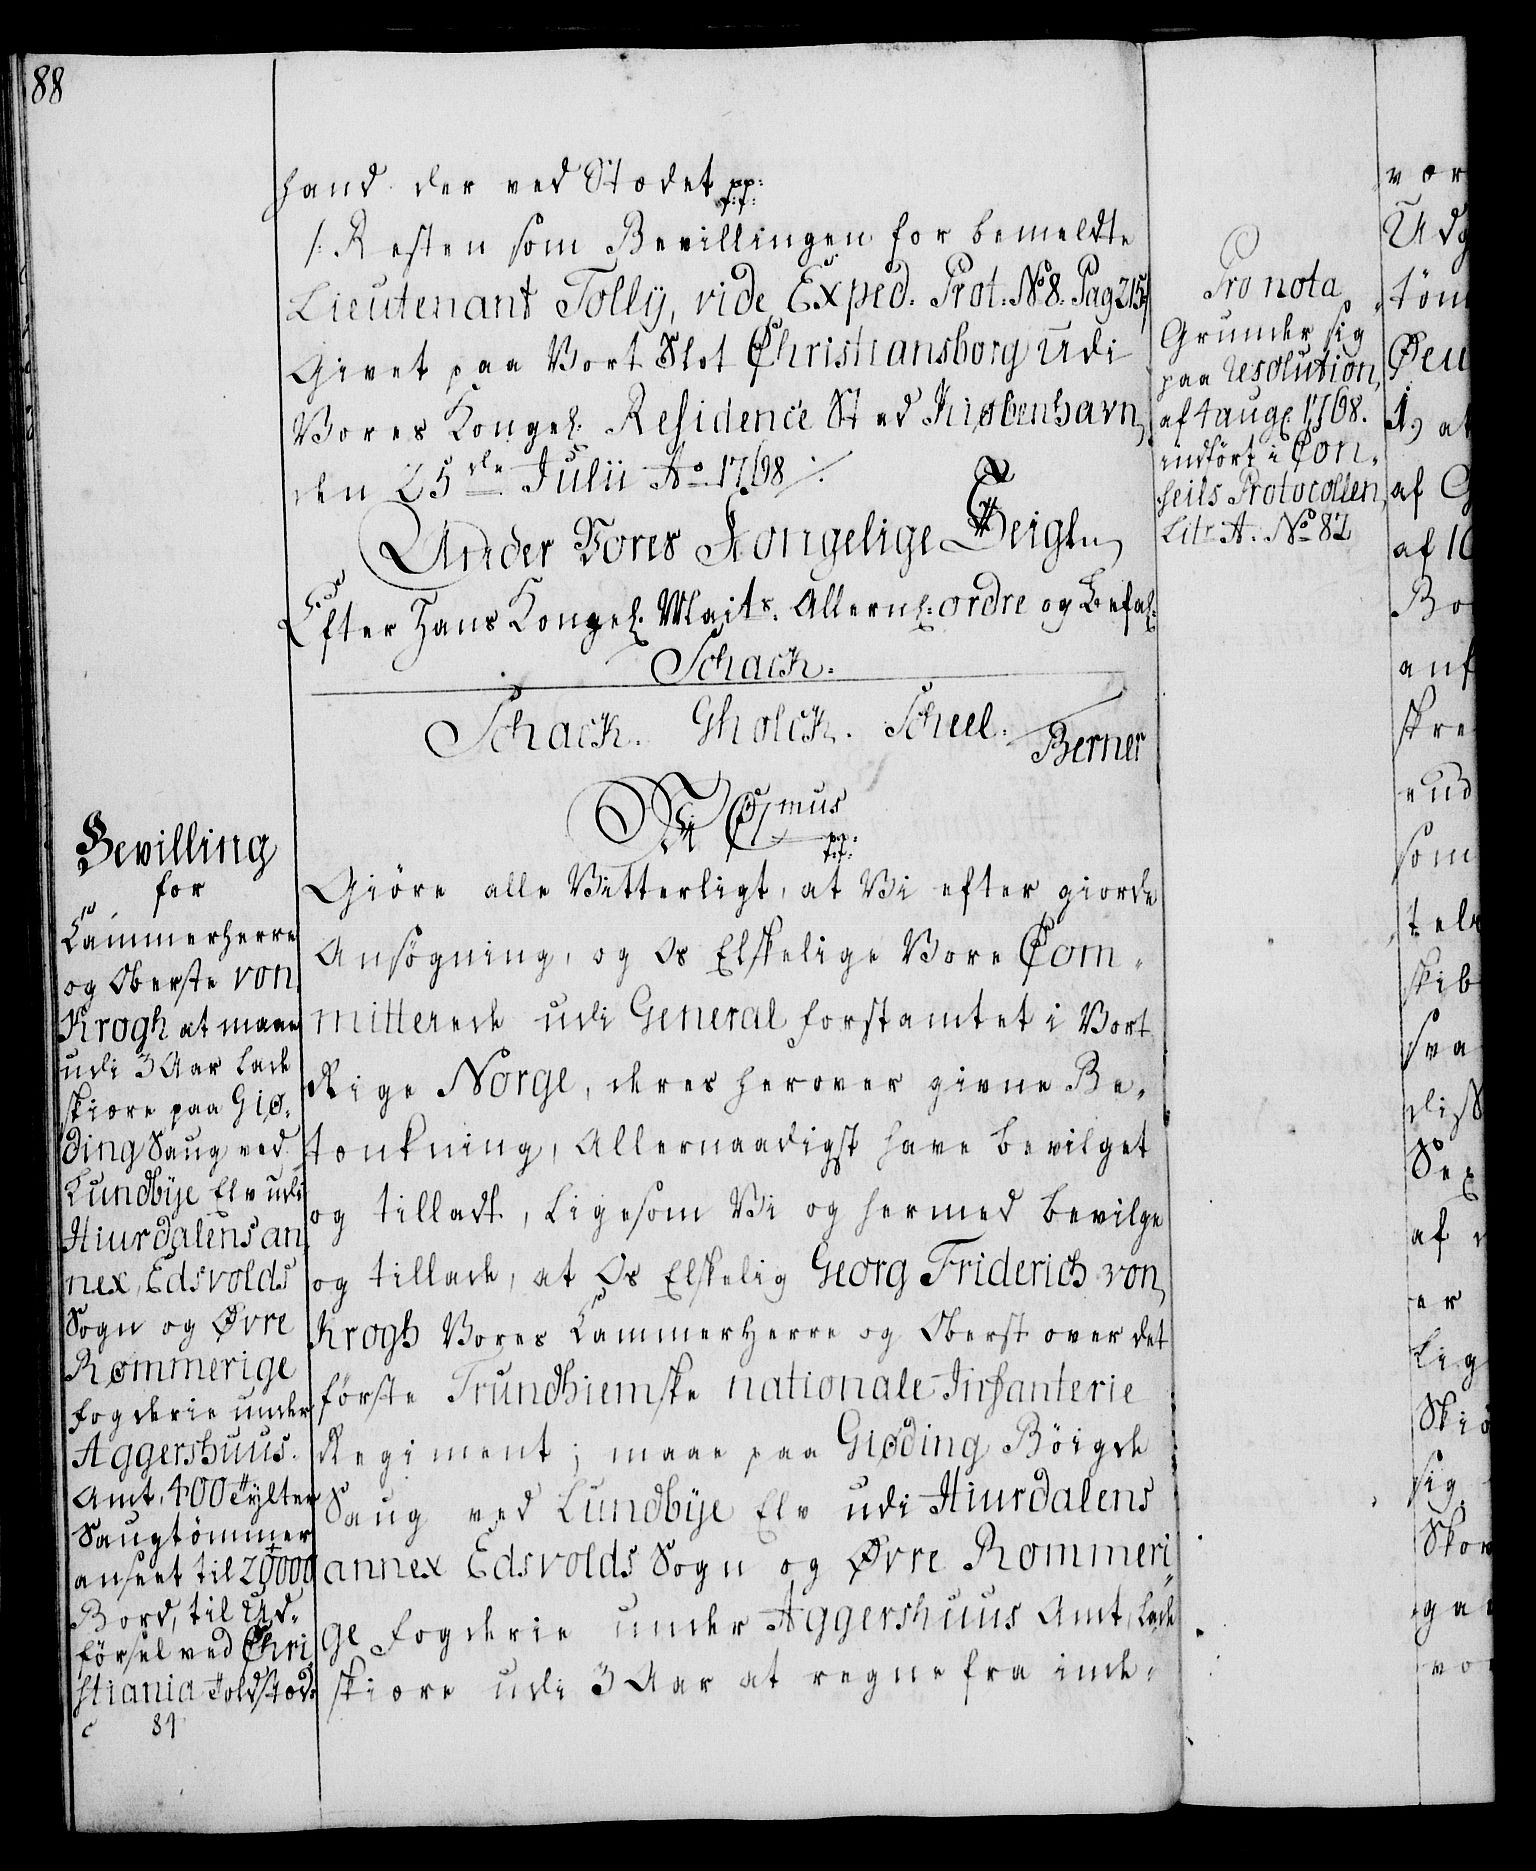 88
hand der ved Stædet pp:
/: Resten som Bevillingen for bemeldte
Lieutenant Tolly, vide Exped. Prot. No 8. Pag 215/
Givet paa Vort Slot Christiansborg udi
Vores Kongel. Residence Stad Kiøbenhavn
den 25de Julii Ao 1768 /.
Under Vores Kongelige Seigln
Efter Hans Kongel. Maits. Allern: ordre og Befal:
Schack.
Schack. Gholck. Scheel.
Berner
Pro nota
Grunder sig
paa resolution,
af 4 aug. 1768.
indført i Con-
seils Protocollen
Litr A. No 82
Bevilling
for
Cammerherre
og Oberste von
Krogh at maae
udi 3 Aar lade
skiære paa Giø-
ding Saug ved
Lundbÿe Elv udi
Hiurdalens an
nex, Edsvolds
Sogn og Øvre
Rommerige
fogderie under
Aggershuus
Amt, 400 tylter
Saugtømmer
anseet til 20000
Bord, til Ud-
førsel ved Chri
stiania Toldstæd:
c 89
Wi C 7mus
pp:
Giøre alle Vitterligt, at Vi efter giorde
Ansøgning, og Os Elskelige Vore Com-
mitterede udi General forstamtet i Vort
Rige Norge, deres herover givne Be-
tænkning, Allernaadigst have bevilget
og tilladt, Ligesom Vi og hermed bevilge
og tillade, at Os Elskelig Georg Friderich von
Krogh Vores CammerHerre og Oberst over det
første Trundhiemske nationale Infanterie
Regiment; maae paa Giøding Böigde
Saug ved Lundbÿe Elv udi Hiurdalens
annex Edsvolds Sogn og Øvre Rommeri-
ge fogderie under Aggershuus Amt, lade
skiære udi 3 Aar at regne fra inde-